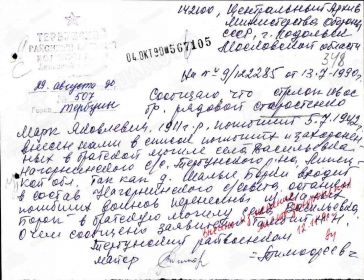 142100, Центральный Архив
Министерства Обороны
СССР, г. Подольск
Московской области
348
ТЕРБУНСКИЙ
РАЙОННЫЙ
04.ОКТ90 567105
29 августа 90
507
Тербуны
На № 9/112285 от 13.7.1990г.
Сообщаю, что стрелок
рядовой Старостенко
Марк Яковлевич, 1911 г.р., погибший 5.7.1942
внесен нами в списки погибших и захоронен-
ных в братской могиле села Васильевка
Тербунского р-на, Липец-
кой обл. Так как д. Малые Борки входит
в состав сельсовета, останки
погибших воинов перенесены из Малых
Борок в братскую могилу села Васильевка
О чем сообщено
Тербунский райвоенком
майор Тимофеев